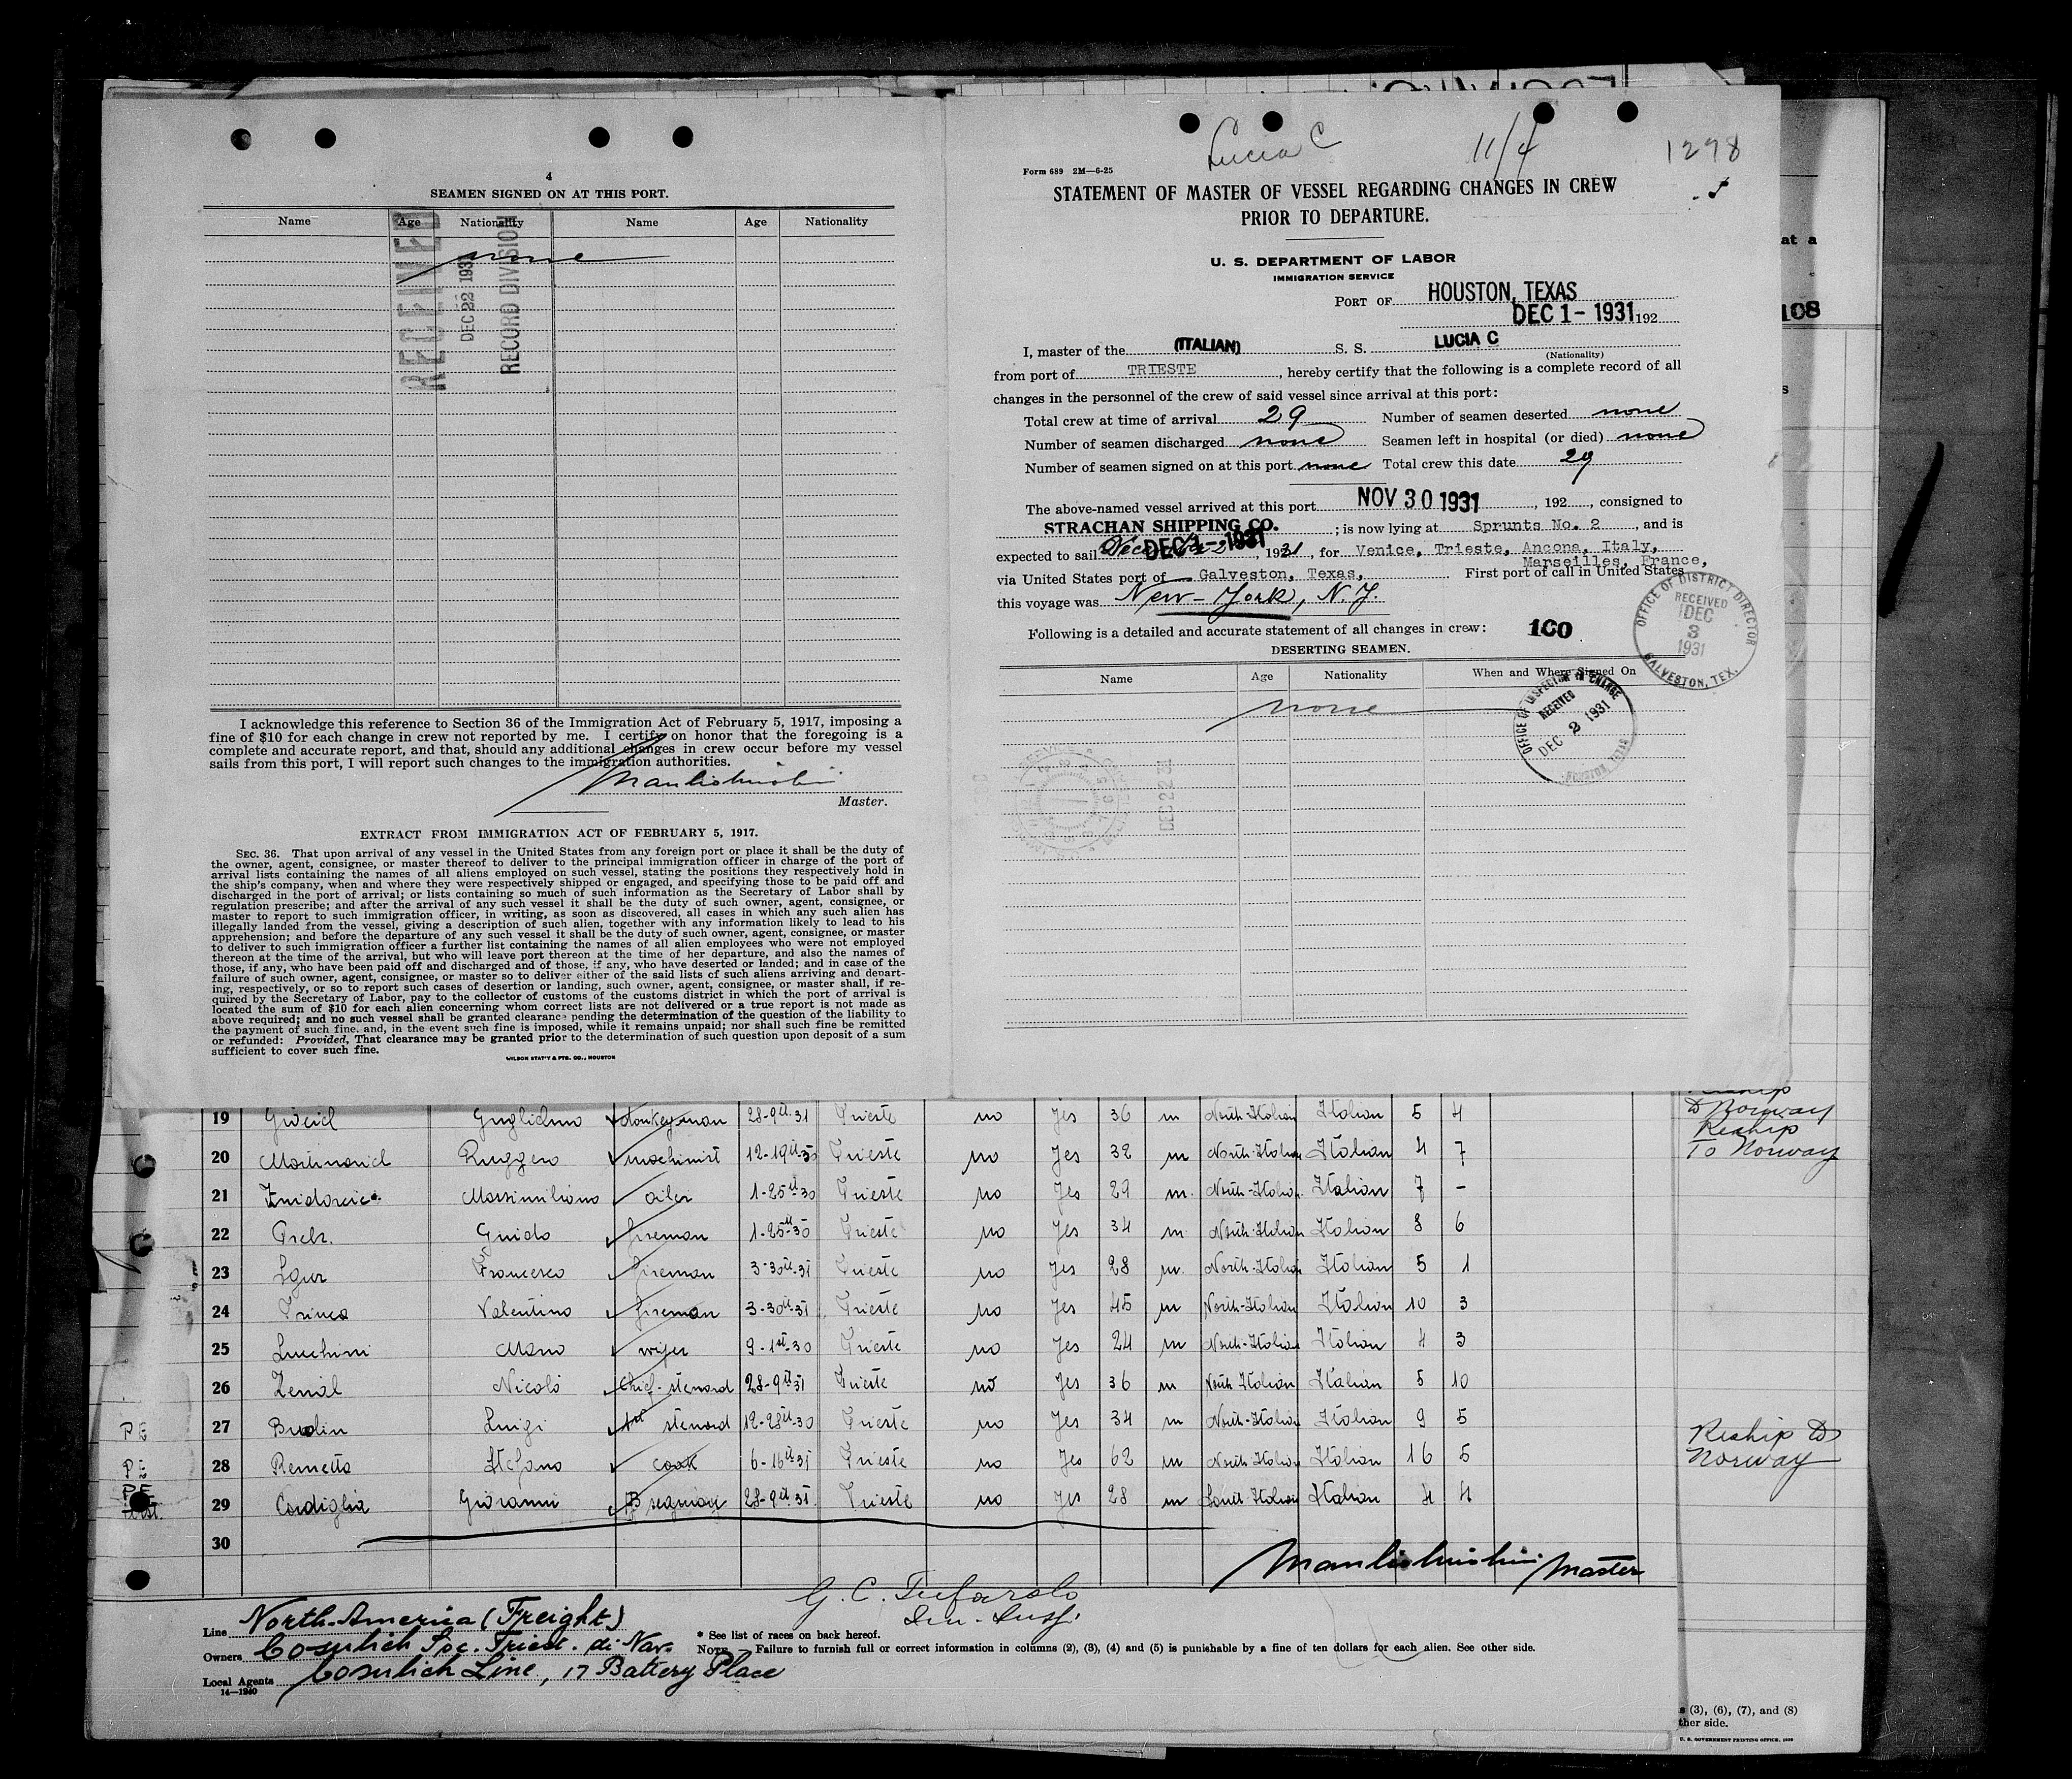 4
SEAMEN SIGNED ON AT THIS PORT.
Name Age Nationality Name Age Nationality
none
RECEIVED
DEC 22 1931
RECORD DIVISION
I acknowledge this reference to Section 36 of the Immigration Act of February 5, 1917, imposing a
fine of $10 for each change in crew not reported by me. I certify on honor that the foregoing is a
complete and accurate report, and that, should any additional changes in crew occur before my vessel
sails from this port, I will report such changes to the immigration authorities.
Master.
EXTRACT FROM IMMIGRATION ACT OF FEBRUARY 5, 1917.
SEC. 36. That upon arrival of any vessel in the United States from any foreign port or place it shall be the duty of
the owner, agent, consignee, or master thereof to deliver to the principal immigration officer in charge of the port of
arrival lists containing the names of all aliens employed on such vessel, stating the positions they respectively hold in
the ship's company, when and where they were respectively shipped or engaged, and specifying those to be paid off and
discharged in the port of arrival; or lists containing so much of such information as the Secretary of Labor shall by
regulation prescribe; and after the arrival of any such vessel it shall be the duty of such owner, agent, consignee, or
master to report to such immigration officer, in writing, as soon as discovered, all cases in which any such alien has
illegally landed from the vessel, giving a description of such alien, together with any information likely to lead to his
apprehension; and before the departure of any such vessel it shall be the duty of such owner, agent, consignee, or master
to deliver to such immigration officer a further list containing the names of all alien employees who were not employed
thereon at the time of the arrival, but who will leave port thereon at the time of her departure, and also the names of
those, if any, who have been paid off and discharged and of those, if any, who have deserted or landed; and in case of the
failure of such owner, agent, consignee, or master so to deliver either of the said lists of such aliens arriving and depart-
ing, respectively, or so to report such cases of desertion or landing, such owner, agent, consignee, or master shall, if re-
quired by the Secretary of Labor, pay to the collector of customs of the customs district in which the port of arrival is
located the sum of $10 for each alien concerning whom correct lists are not delivered or a true report is not made as
above required; and no such vessel shall be granted clearance pending the determination of the question of the liability to
the payment of such fine. and, in the event such fine is imposed, while it remains unpaid; nor shall such fine be remitted
or refunded: Provided, That clearance may be granted prior to the determination of such question upon deposit of a sum
sufficient to cover such fine.
WILSON STAT'Y & PTG. CO., HOUSTON
Lucia C 11/4 1298
Form 689 2M—6-25
STATEMENT OF MASTER OF VESSEL REGARDING CHANGES IN CREW
PRIOR TO DEPARTURE.
U. S. DEPARTMENT OF LABOR
IMMIGRATION SERVICE
PORT OF HOUSTON, TEXAS
DEC 1- 1931 192
I, master of the (ITALIAN) S. S. LUCIA C
(Nationality)
from port of TRIESTE, hereby certify that the following is a complete record of all
changes in the personnel of the crew of said vessel since arrival at this port:
Total crew at time of arrival 29 Number of seamen deserted none
Number of seamen discharged none Seamen left in hospital (or died) none
Number of seamen signed on at this port none Total crew this date 29
The above-named vessel arrived at this port NOV 30 1931, 192, consigned to
STRACHAN SHIPPING CO.; is now lying at Sprunts No. 2, and is
expected to sail December 2 DEC 1- 1931, 1931, for Venice, Trieste, Ancona, Italy,
Marseilles, France,
via United States port of Galveston, Texas, First port of call in United States
this voyage was New-York, N.Y.
Following is a detailed and accurate statement of all changes in crew: 100
OFFICE OF DISTRICT DIRECTOR
RECEIVED
DEC
3
1931
GALVESTON, TEX.
DESERTING SEAMEN.
Name Age Nationality When and Where Signed On
none
OFFICE OF INSPECTOR IN CHARGE
RECEIVED
DEC 2 1931
HOUSTON, TEXAS
at a
108
19 donkeyman 28-9th-31 Trieste no Yes 36 m North-Italian Italian 5 4
20 Ruggero machinist Trieste no Yes 32 m North-Italian Italian 4 7
21 Massimiliano oiler 1-25th-30 Trieste no Yes 29 m. North-Italian Italian 7 -
22 Guido fireman 1-25th-30 Trieste no Yes 34 m North-Italian Italian 8 6
23 Sgur Francesco fireman 3-30th-31 Trieste no Yes 28 m. North-Italian Italian 5 1
24 Valentino fireman 3-30th-31 Trieste no Yes 45 m North-Italian Italian 10 3
25 Lucchini Mario wiper 9-1st-30 Trieste no Yes 24 m North-Italian Italian 4 3
26 Nicolò Chief-steward 28-9th-31 Trieste no Yes 36 m North Italian Italian 5 10
PE 27 Budin Luigi 1st steward 12-28th-30 Trieste no Yes 34 m North-Italian Italian 9 5
PE 28 Remetta Stefano cook 6-16th-31 Trieste no Yes 62 m North Italian Italian 16 5
PE 29 Cordiglia Giovanni 28-9th-31 Trieste no Yes 28 m South-Italian Italian 4 4
30
Master
Reship
To Norway
Reship
To Norway
Reship to
Norway
Line North-America (Freight)
* See list of races on back hereof.
Owners Cosulich Soc. Triest. di Nav.
NOTE.—Failure to furnish full or correct information in columns (2), (3), (4) and (5) is punishable by a fine of ten dollars for each alien. See other side.
Local Agents Cosulich Line, 17 Battery Place
14—1240
s (3), (6), (7), and (8)
ther side.
U. S. GOVERNMENT PRINTING OFFICE